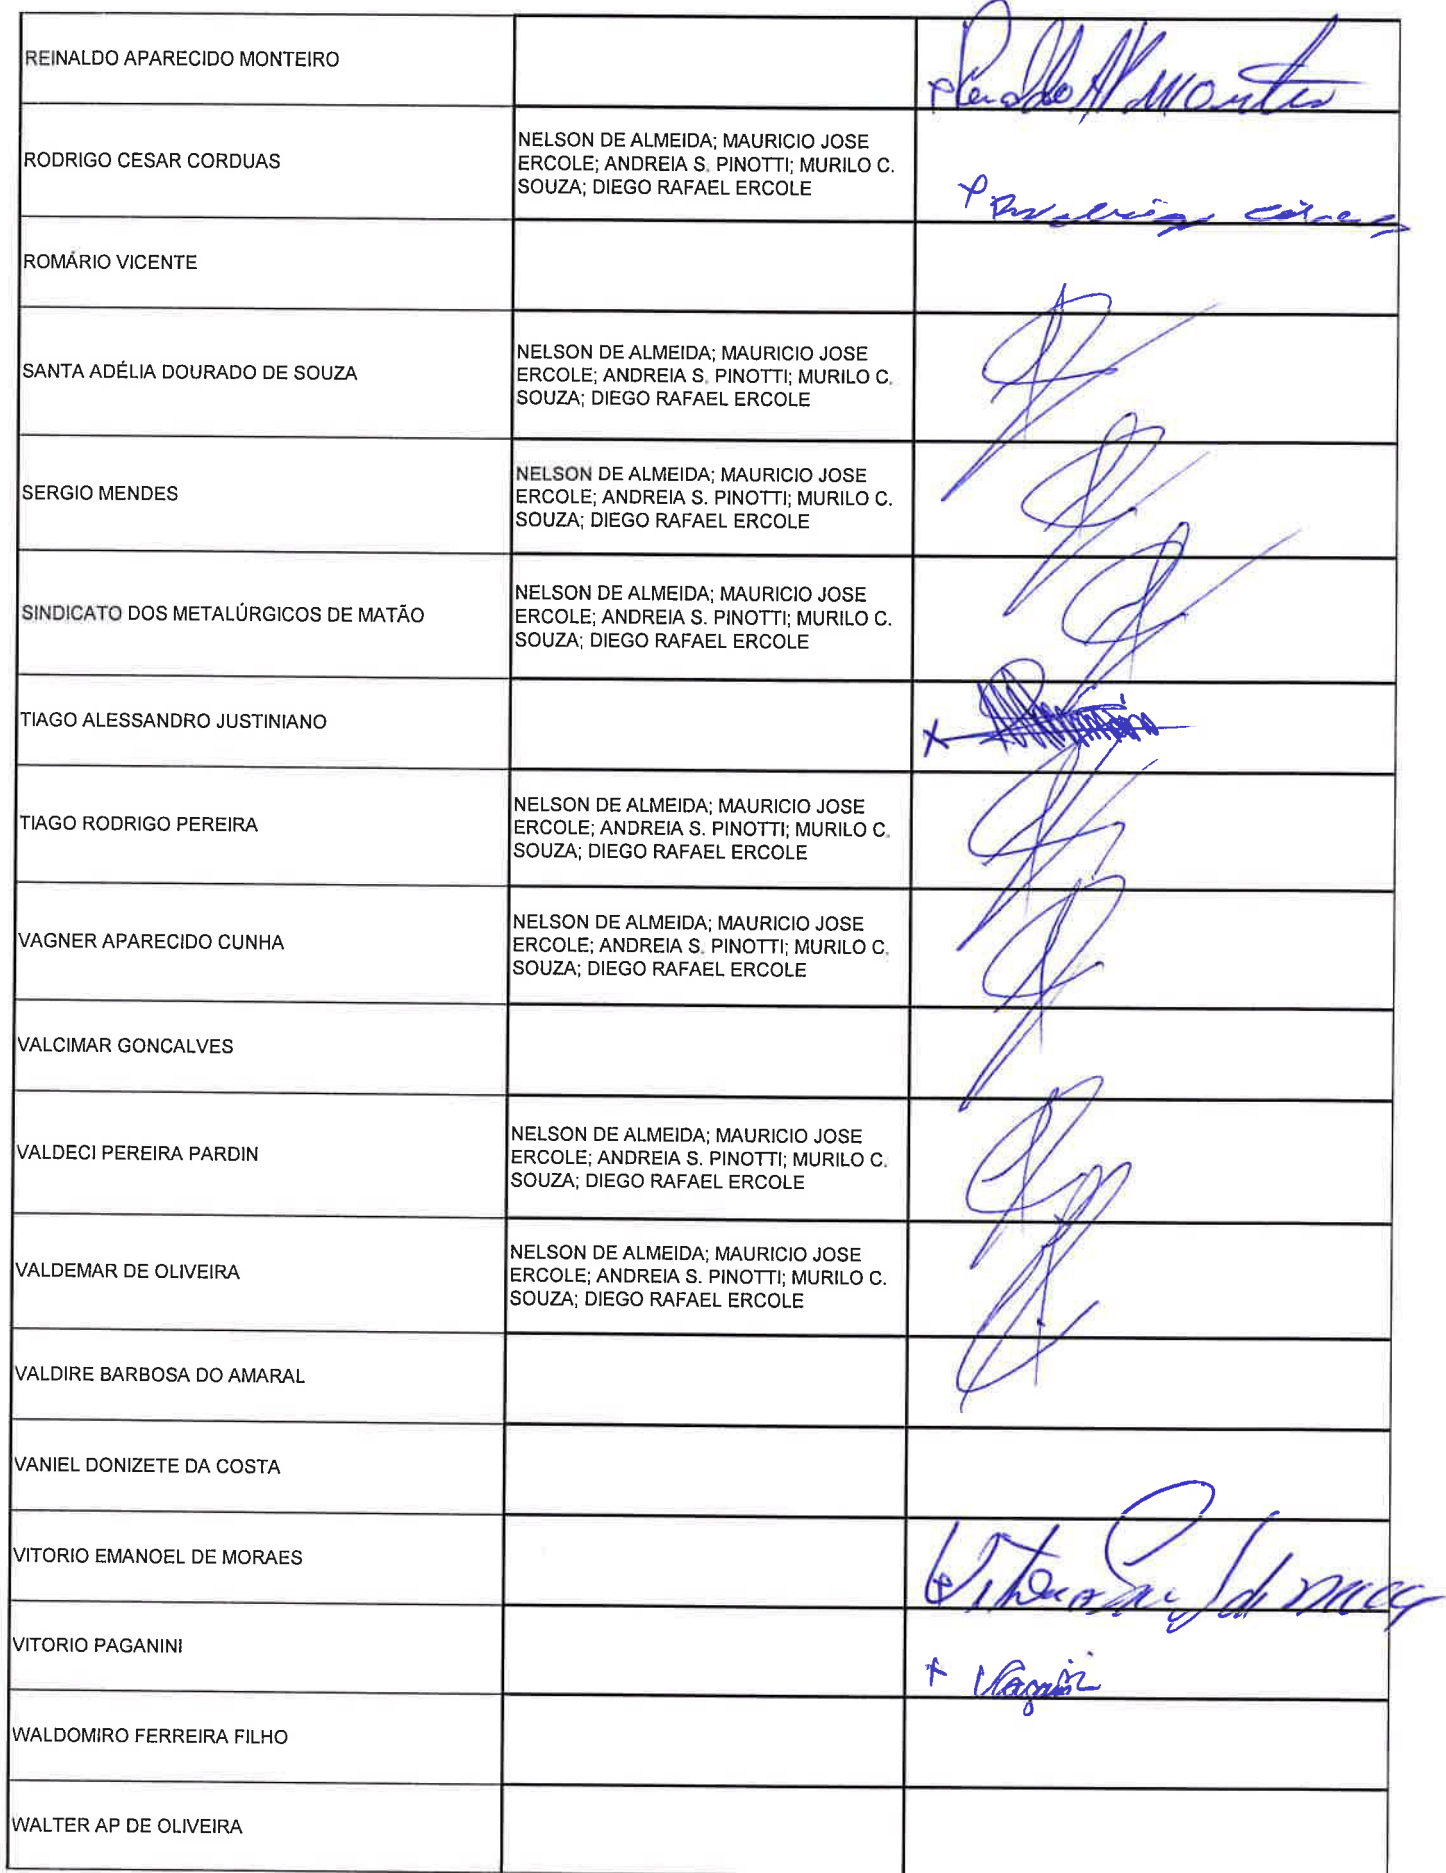 REINALDO APARECIDO MONTEIRO
RODRIGO CESAR CORDUAS
NELSON DE ALMEIDA; MAURICIO JOSE
ERCOLE; ANDREIA S. PINOTTI; MURILO C.
SOUZA; DIEGO RAFAEL ERCOLE
ROMÁRIO VICENTE
SANTA ADÉLIA DOURADO DE SOUZA
NELSON DE ALMEIDA; MAURICIO JOSE
ERCOLE; ANDREIA S. PINOTTI; MURILO C.
SOUZA; DIEGO RAFAEL ERCOLE
SERGIO MENDES
NELSON DE ALMEIDA; MAURICIO JOSE
ERCOLE; ANDREIA S. PINOTTI; MURILO C.
SOUZA; DIEGO RAFAEL ERCOLE
SINDICATO DOS METALÚRGICOS DE MATÃO
NELSON DE ALMEIDA; MAURICIO JOSE
ERCOLE; ANDREIA S. PINOTTI; MURILO C.
SOUZA; DIEGO RAFAEL ERCOLE
TIAGO ALESSANDRO JUSTINIANO
TIAGO RODRIGO PEREIRA
NELSON DE ALMEIDA; MAURICIO JOSE
ERCOLE; ANDREIA S. PINOTTI; MURILO C.
SOUZA; DIEGO RAFAEL ERCOLE
VAGNER APARECIDO CUNHA
NELSON DE ALMEIDA; MAURICIO JOSE
ERCOLE; ANDREIA S. PINOTTI; MURILO C.
SOUZA; DIEGO RAFAEL ERCOLE
VALCIMAR GONCALVES
VALDECI PEREIRA PARDIN
NELSON DE ALMEIDA; MAURICIO JOSE
ERCOLE; ANDREIA S. PINOTTI; MURILO C.
SOUZA; DIEGO RAFAEL ERCOLE
VALDEMAR DE OLIVEIRA
NELSON DE ALMEIDA; MAURICIO JOSE
ERCOLE; ANDREIA S. PINOTTI; MURILO C.
SOUZA; DIEGO RAFAEL ERCOLE
VALDIRE BARBOSA DO AMARAL
VANIEL DONIZETE DA COSTA
VITORIO EMANOEL DE MORAES
VITORIO PAGANINI
WALDOMIRO FERREIRA FILHO
WALTER AP DE OLIVEIRA